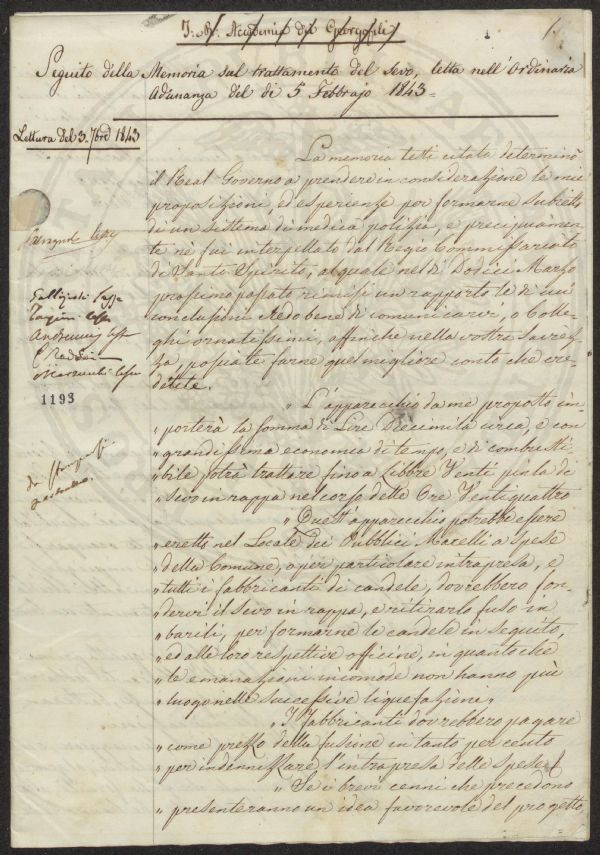 I: R: Accademia dei Georgofili
1.
Seguito della Memoria sul trattamento del Sevo, letta nell'Ordinaria
Adunanza del dì 5 Febbrajo 1843=
Lettura del 3. 7bre 1843
La memoria testè citata determinò
il Real Governo a prendere in considerazione le mie
proposizioni, ed esperienze per formarne subietto
di un sistema di medica polizia, e precipuamen=
te nè fui interpellato dal Regio Commissariato
di Santo Spirito, al quale nel dì Dodici Marzo
prossimo passato rimisi un rapporto le di cui
conclusioni credo bene di comunicarvi, o Colle=
ghi ornatissimi, affinchè nella vostra saviez=
za possiate farne quel migliore conto che cre=
derete.
1193
" L'apparecchio da me proposto im=
" porterà la somma di Lire Diecimila circa, e con
" grandissima economia di tempo, e di combusti=
" bile potrà trattare fino a Libbre Venti mila di
" sevo in rappa nel corso delle Ore Ventiquattro
" Quest'apparecchio potrebbe essere
" eretto nel Locale dei Pubblici Macelli a spese
" della Comune, o per particolare intrapresa, e
" tutti i fabbricanti di candele, dovrebbero fon=
" dervi il sevo in rappa, e ritirarlo fuso in
" barili, per formarne le candele in seguito,
" ed alle loro respettive officine, in quanto che
" le emanazioni incomode non hanno più
" luogo nelle successive liquefazioni,
" I fabbricanti dovrebbero pagare
" come prezzo della fusione un tanto per cento
" per indennizzare l'intrapresa delle spese
" Se i brevi cenni che precedono
" presenteranno un idea favorevole del progetto,